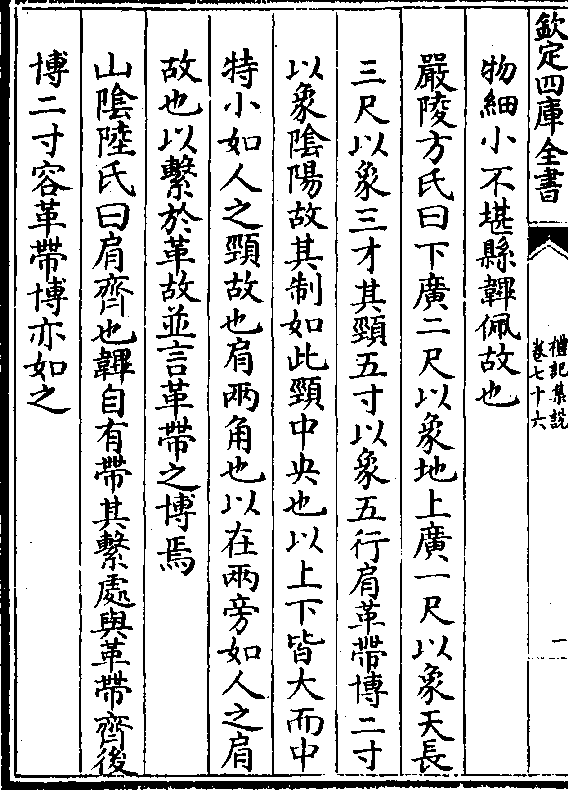 欽定四庫全書
禮記集說
卷七十六
一
物細小不堪縣韠佩故也
嚴陵方氏曰下廣二尺以象地上廣一尺以象天長
三尺以象三才其頸五寸以象五行肩革帶博二寸
以象陰陽故其制如此頸中央也以上下皆大而中
特小如人之頸故也肩兩角也以在兩旁如人之肩
故也以繫於革故並言革帶之博焉
山陰陸氏曰肩齊也韠自有帶其繫處與革帶齊後
博二寸容革帶博亦如之